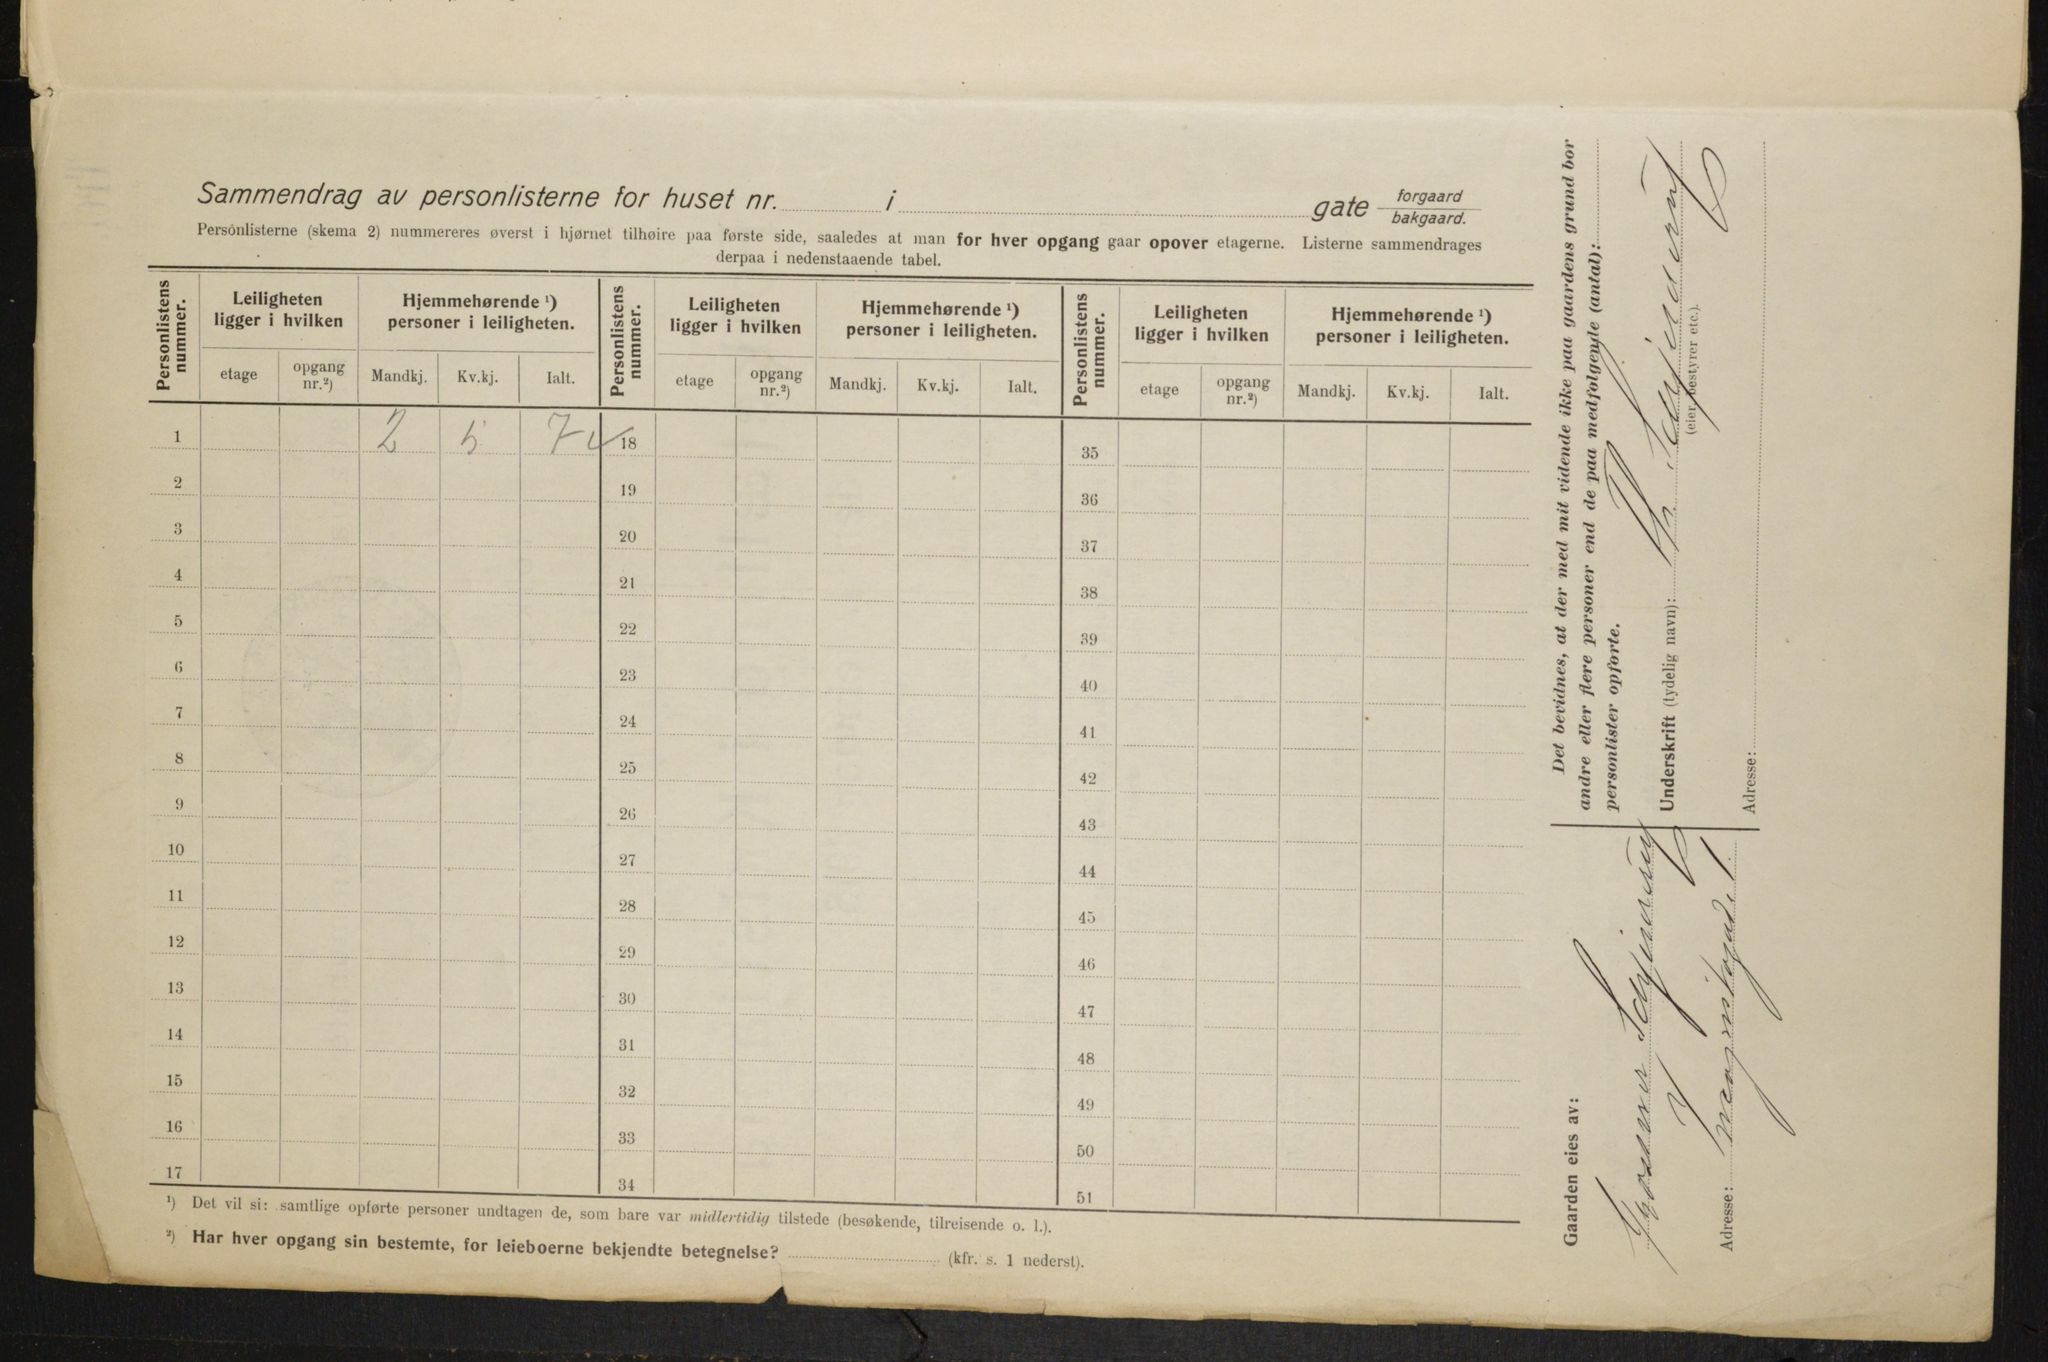 Sammendrag av personlisterne for huset nr. i gate forgaard
bakgaard.
Personlisterne (skema 2) nummereres øverst i hjørnet tilhøire paa første side, saaledes at man for hver opgang gaar opover etagerne. Listerne sammendrages
derpaa i nedenstaaende tabel.
Personlistens nummer. Leiligheten ligger i hvilken Hjemmehørende ¹) personer i leiligheten. Personlistens nummer. Leiligheten ligger i hvilken Hjemmehørende ¹) personer i leiligheten. Personlistens nummer. Leiligheten ligger i hvilken Hjemmehørende ¹) personer i leiligheten.
etage opgang nr.²) Mandkj. Kv.kj. Ialt. etage opgang nr.²) Mandkj. Kv.kj. Ialt. etage opgang nr.²) Mandkj. Kv.kj. Ialt.
1 2 5 7 18 35
2 19 36
3 20 37
4 21 38
5 22 39
6 23 40
7 24 41
8 25 42
9 26 43
10 27 44
11 28 45
12 29 46
13 30 47
14 31 48
15 32 49
16 33 50
17 34 51
¹) Det vil si: samtlige opførte personer undtagen de, som bare var midlertidig tilstede (besøkende, tilreisende o. l.).
²) Har hver opgang sin bestemte, for leieboerne bekjendte betegnelse? (kfr. s. 1 nederst).
Det bevidnes, at der med mit vidende ikke paa gaardens grund bor
andre eller flere personer end de paa medfølgende (antal):
personlister opførte.
Underskrift (tydelig navn):
(eier, bestyrer etc.).
Adresse:
Gaarden eies av:
Adresse: 1